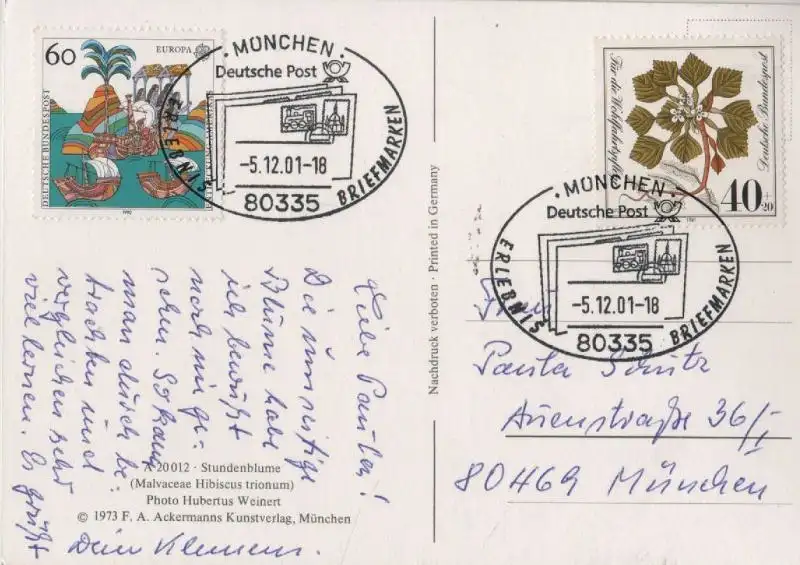 60
EUROPA
DEUTSCHE BUNDESPOST
1992
MÜNCHEN
Deutsche Post
-5.12.01-18
80335
ERLEBNIS BRIEFMARKEN
Für die Wohlfahrtspflege
Deutsche Bundespost
40
+20
MÜNCHEN
Deutsche Post
-5.12.01-18
80335
ERLEBNIS BRIEFMARKEN
Liebe Paula!
Die umseitige
Blume habe
ich bewußt
noch nie ge-
sehn. So kann
man durch be-
trachten und
vergleichen sehr
viel lernen. Es grüßt
Dein Klemens.
A 20 012 · Stundenblume
(Malvaceae Hibiscus trionum)
Photo Hubertus Weinert
© 1973 F. A. Ackermanns Kunstverlag, München
Nachdruck verboten · Printed in Germany
Paula
Auenstraße 36/I
80469 München